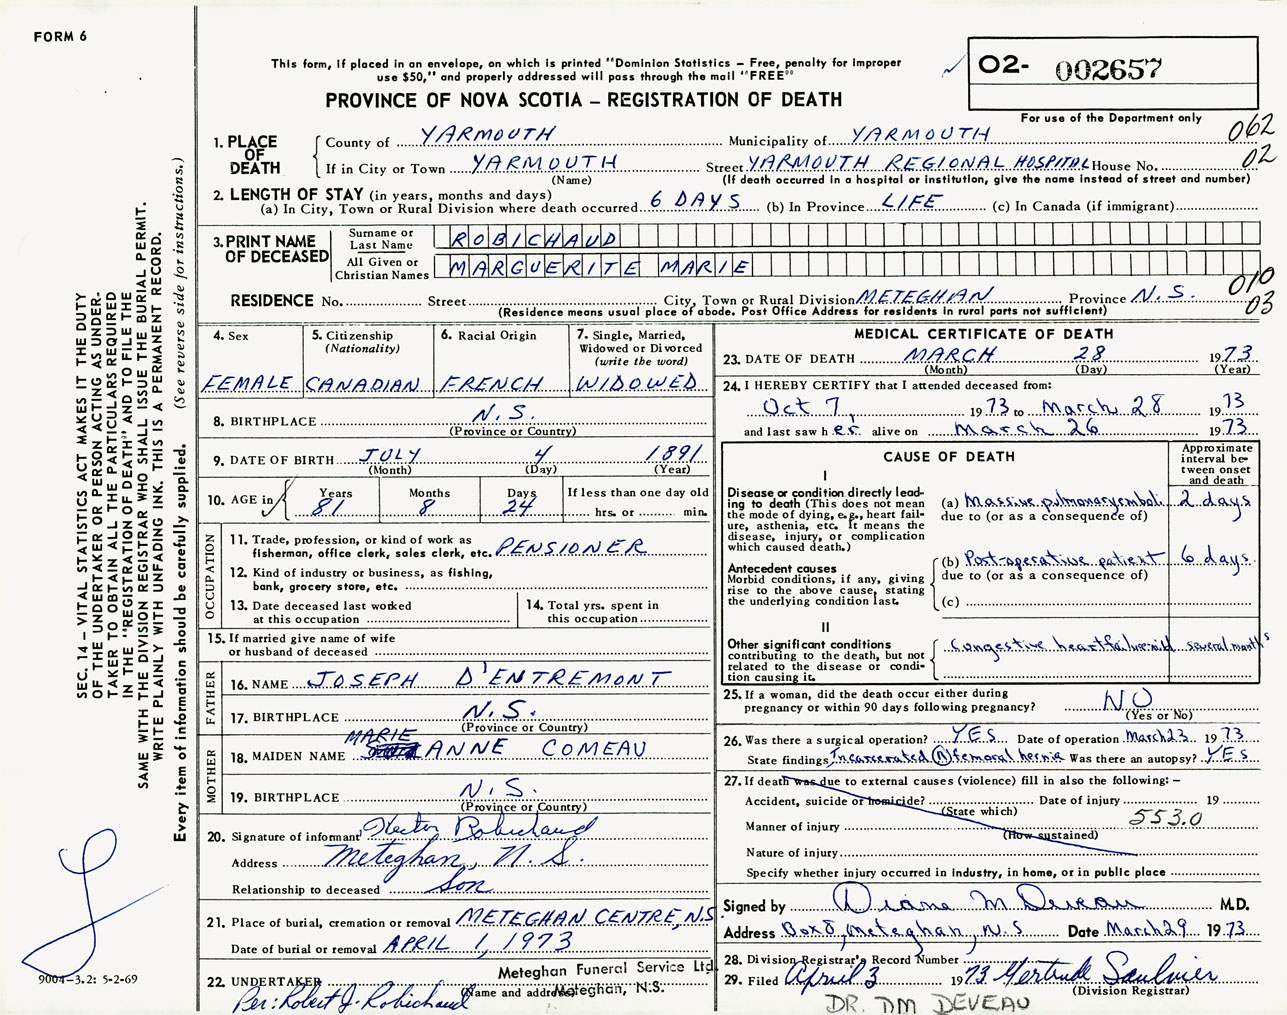 FORM 6
This form, if placed in an envelope, on which is printed "Dominion Statistics – Free, penalty for improper
use $50," and properly addressed will pass through the mail "FREE"
PROVINCE OF NOVA SCOTIA – REGISTRATION OF DEATH
02- 002657
For use of the Department only
062
02
1. PLACE OF DEATH
County of YARMOUTH Municipality of YARMOUTH
If in City or Town YARMOUTH Street YARMOUTH REGIONAL HOSPITAL House No.
(Name) (If death occurred in a hospital or institution, give the name instead of street and number)
2. LENGTH OF STAY (in years, months and days)
(a) In City, Town or Rural Division where death occurred 6 DAYS (b) In Province LIFE (c) In Canada (if immigrant)
3. PRINT NAME OF DECEASED
Surname or Last Name ROBICHAUD
All Given or Christian Names MARGUERITE MARIE
010
03
RESIDENCE No. Street City, Town or Rural Division METEGHAN Province N.S.
(Residence means usual place of abode. Post Office Address for residents in rural parts not sufficient)
4. Sex
FEMALE
5. Citizenship (Nationality)
CANADIAN
6. Racial Origin
FRENCH
7. Single, Married, Widowed or Divorced (write the word)
WIDOWED
8. BIRTHPLACE N.S.
(Province or Country)
9. DATE OF BIRTH JULY 4 1891
(Month) (Day) (Year)
10. AGE in Years 81 Months 8 Days 24 If less than one day old
hrs. or min.
OCCUPATION
11. Trade, profession, or kind of work as
fisherman, office clerk, sales clerk, etc. PENSIONER
12. Kind of industry or business, as fishing,
bank, grocery store, etc.
13. Date deceased last worked
at this occupation
14. Total yrs. spent in
this occupation
15. If married give name of wife
or husband of deceased
FATHER
16. NAME JOSEPH D'ENTREMONT
17. BIRTHPLACE N.S.
(Province or Country)
MOTHER
18. MAIDEN NAME MARIE ANNE COMEAU
19. BIRTHPLACE N.S.
(Province or Country)
20. Signature of informant Hector Robichaud
Address Meteghan, N.S.
Relationship to deceased Son
21. Place of burial, cremation or removal METEGHAN CENTRE, N.S
Date of burial or removal APRIL 1, 1973
22. UNDERTAKER Meteghan Funeral Service Ltd.
(Name and address) Meteghan, N.S.
Per: Robert J. Robichaud
MEDICAL CERTIFICATE OF DEATH
23. DATE OF DEATH MARCH 28 1973
(Month) (Day) (Year)
24. I HEREBY CERTIFY that I attended deceased from:
Oct 7, 1973 to March 28 1973
and last saw her alive on March 26 1973
CAUSE OF DEATH
Approximate interval between onset and death
I
Disease or condition directly leading to death (This does not mean the mode of dying, e.g., heart failure, asthenia, etc. It means the disease, injury, or complication which caused death.)
(a) Massive pulmonary emboli 2 days
due to (or as a consequence of)
Antecedent causes
Morbid conditions, if any, giving rise to the above cause, stating the underlying condition last.
(b) Post-operative patient 6 days
due to (or as a consequence of)
(c)
II
Other significant conditions
contributing to the death, but not related to the disease or condition causing it.
Congestive heart failure mild several months
25. If a woman, did the death occur either during
pregnancy or within 90 days following pregnancy? NO
(Yes or No)
26. Was there a surgical operation? YES Date of operation March 23 1973
State findings Incarcerated (R) femoral hernia Was there an autopsy? YES
27. If death was due to external causes (violence) fill in also the following: –
Accident, suicide or homicide? Date of injury 19
(State which)
Manner of injury 553.0
(How sustained)
Nature of injury
Specify whether injury occurred in industry, in home, or in public place
Signed by Diane M Deveau M.D.
Address Box 8, Meteghan, N.S Date March 29 1973
28. Division Registrar's Record Number
29. Filed April 3 1973 Gertrude Saulnier
(Division Registrar)
DR. DM DEVEAU
SEC. 14 – VITAL STATISTICS ACT MAKES IT THE DUTY
OF THE UNDERTAKER OR PERSON ACTING AS UNDERTAKER
TO OBTAIN ALL THE PARTICULARS REQUIRED
IN THE "REGISTRATION OF DEATH" AND TO FILE THE
SAME WITH THE DIVISION REGISTRAR WHO SHALL ISSUE THE BURIAL PERMIT.
WRITE PLAINLY WITH UNFADING INK. THIS IS A PERMANENT RECORD.
Every item of information should be carefully supplied. (See reverse side for instructions.)
9004–3.2: 5-2-69